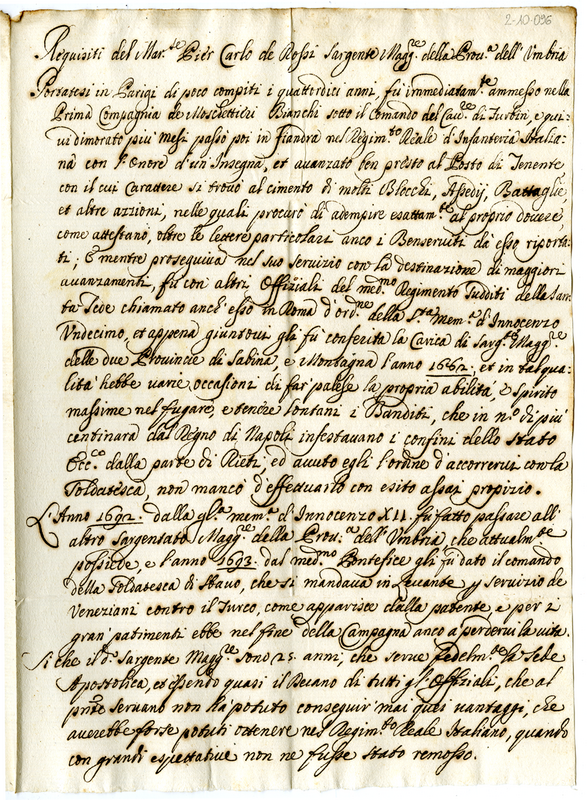 2-10-096
Requisiti del Mar.se Pier Carlo de Rossi Sargente Magg.re della Prou.a dell'Vmbria
Portatesi in Parigi di poco compiti i quattordici anni, fù immediatam.te ammesso nella
Prima Compagnia de Moschettieri Bianchi sotto il comando del Cau.re di Furbin, e qui-
ui dimorato più mesi passò poi in fiandra nel Regim.to Reale d'Infanteria Italia-
na con l'onore d'un'Insegna, et auanzato ben presto al Posto di Tenente
con il cui Carattere si trouò al cimento di molti Blocchi, Assedij, Battaglie,
et altre azzioni, nelle quali procurò di adempire esattam.te al proprio douere,
come attestano, oltre le lettere particolari anco i Benseruiti da esso riporta-
ti; E mentre proseguiua nel suo seruizio con la destinazione di maggiori
auanzamenti, fù con altri Offiziali del med.mo Regimento sudditi della San-
ta Sede chiamato anch'esso in Roma d'ord.ne della S.ta Mem.a d'Innocenzo
Vndecimo, et appena giuntoui gli fù conferita la Carica di Sarg.te Magg.re
delle due Prouincie di Sabina, e Montagna l'anno 1662. et in tal qua-
lità hebbe uarie occasioni di far palese la propria abilità, e Spirito
massime nel fugare, e tenere lontani i Banditi, che in n.o di più
centinara dal Regno di Napoli infestauano i confini dello Stato
Ecc.co dalla parte di Rieti, ed auuto egli l'ordine d'accorrerui con la
Soldatesca, non mancò d'effettuarlo con esito assai propizio.
L'Anno 1692. dalla gl.a mem.a d'Innocenzo XII. fù fatto passare all'
altro Sargentato Magg.re della Prou.a dell'Vmbria, che attualm.te
possiede, e l'anno 1693. dal med.mo Pontefice gli fù dato il comando
della Soldatesca di Stauo, che si mandaua in Leuante p seruizio de
Veneziani contro il Turco, come apparisce dalla patente, e per i
gran patimenti ebbe nel fine della Campagna anco a perderui la uita.
Si che il d.o Sargente Magg.re sono 25. anni, che serue fedelm.te la Sede
Apostolica, et essendo quasi il Decano di tutti gl'Offiziali, che al
pnte seruano non hà potuto conseguir mai quei uantaggi, che
auerebbe forse potuti ottenere nel Regim.to Reale Italiano, quando
con grandi espettatiue non ne fusse stato remosso.